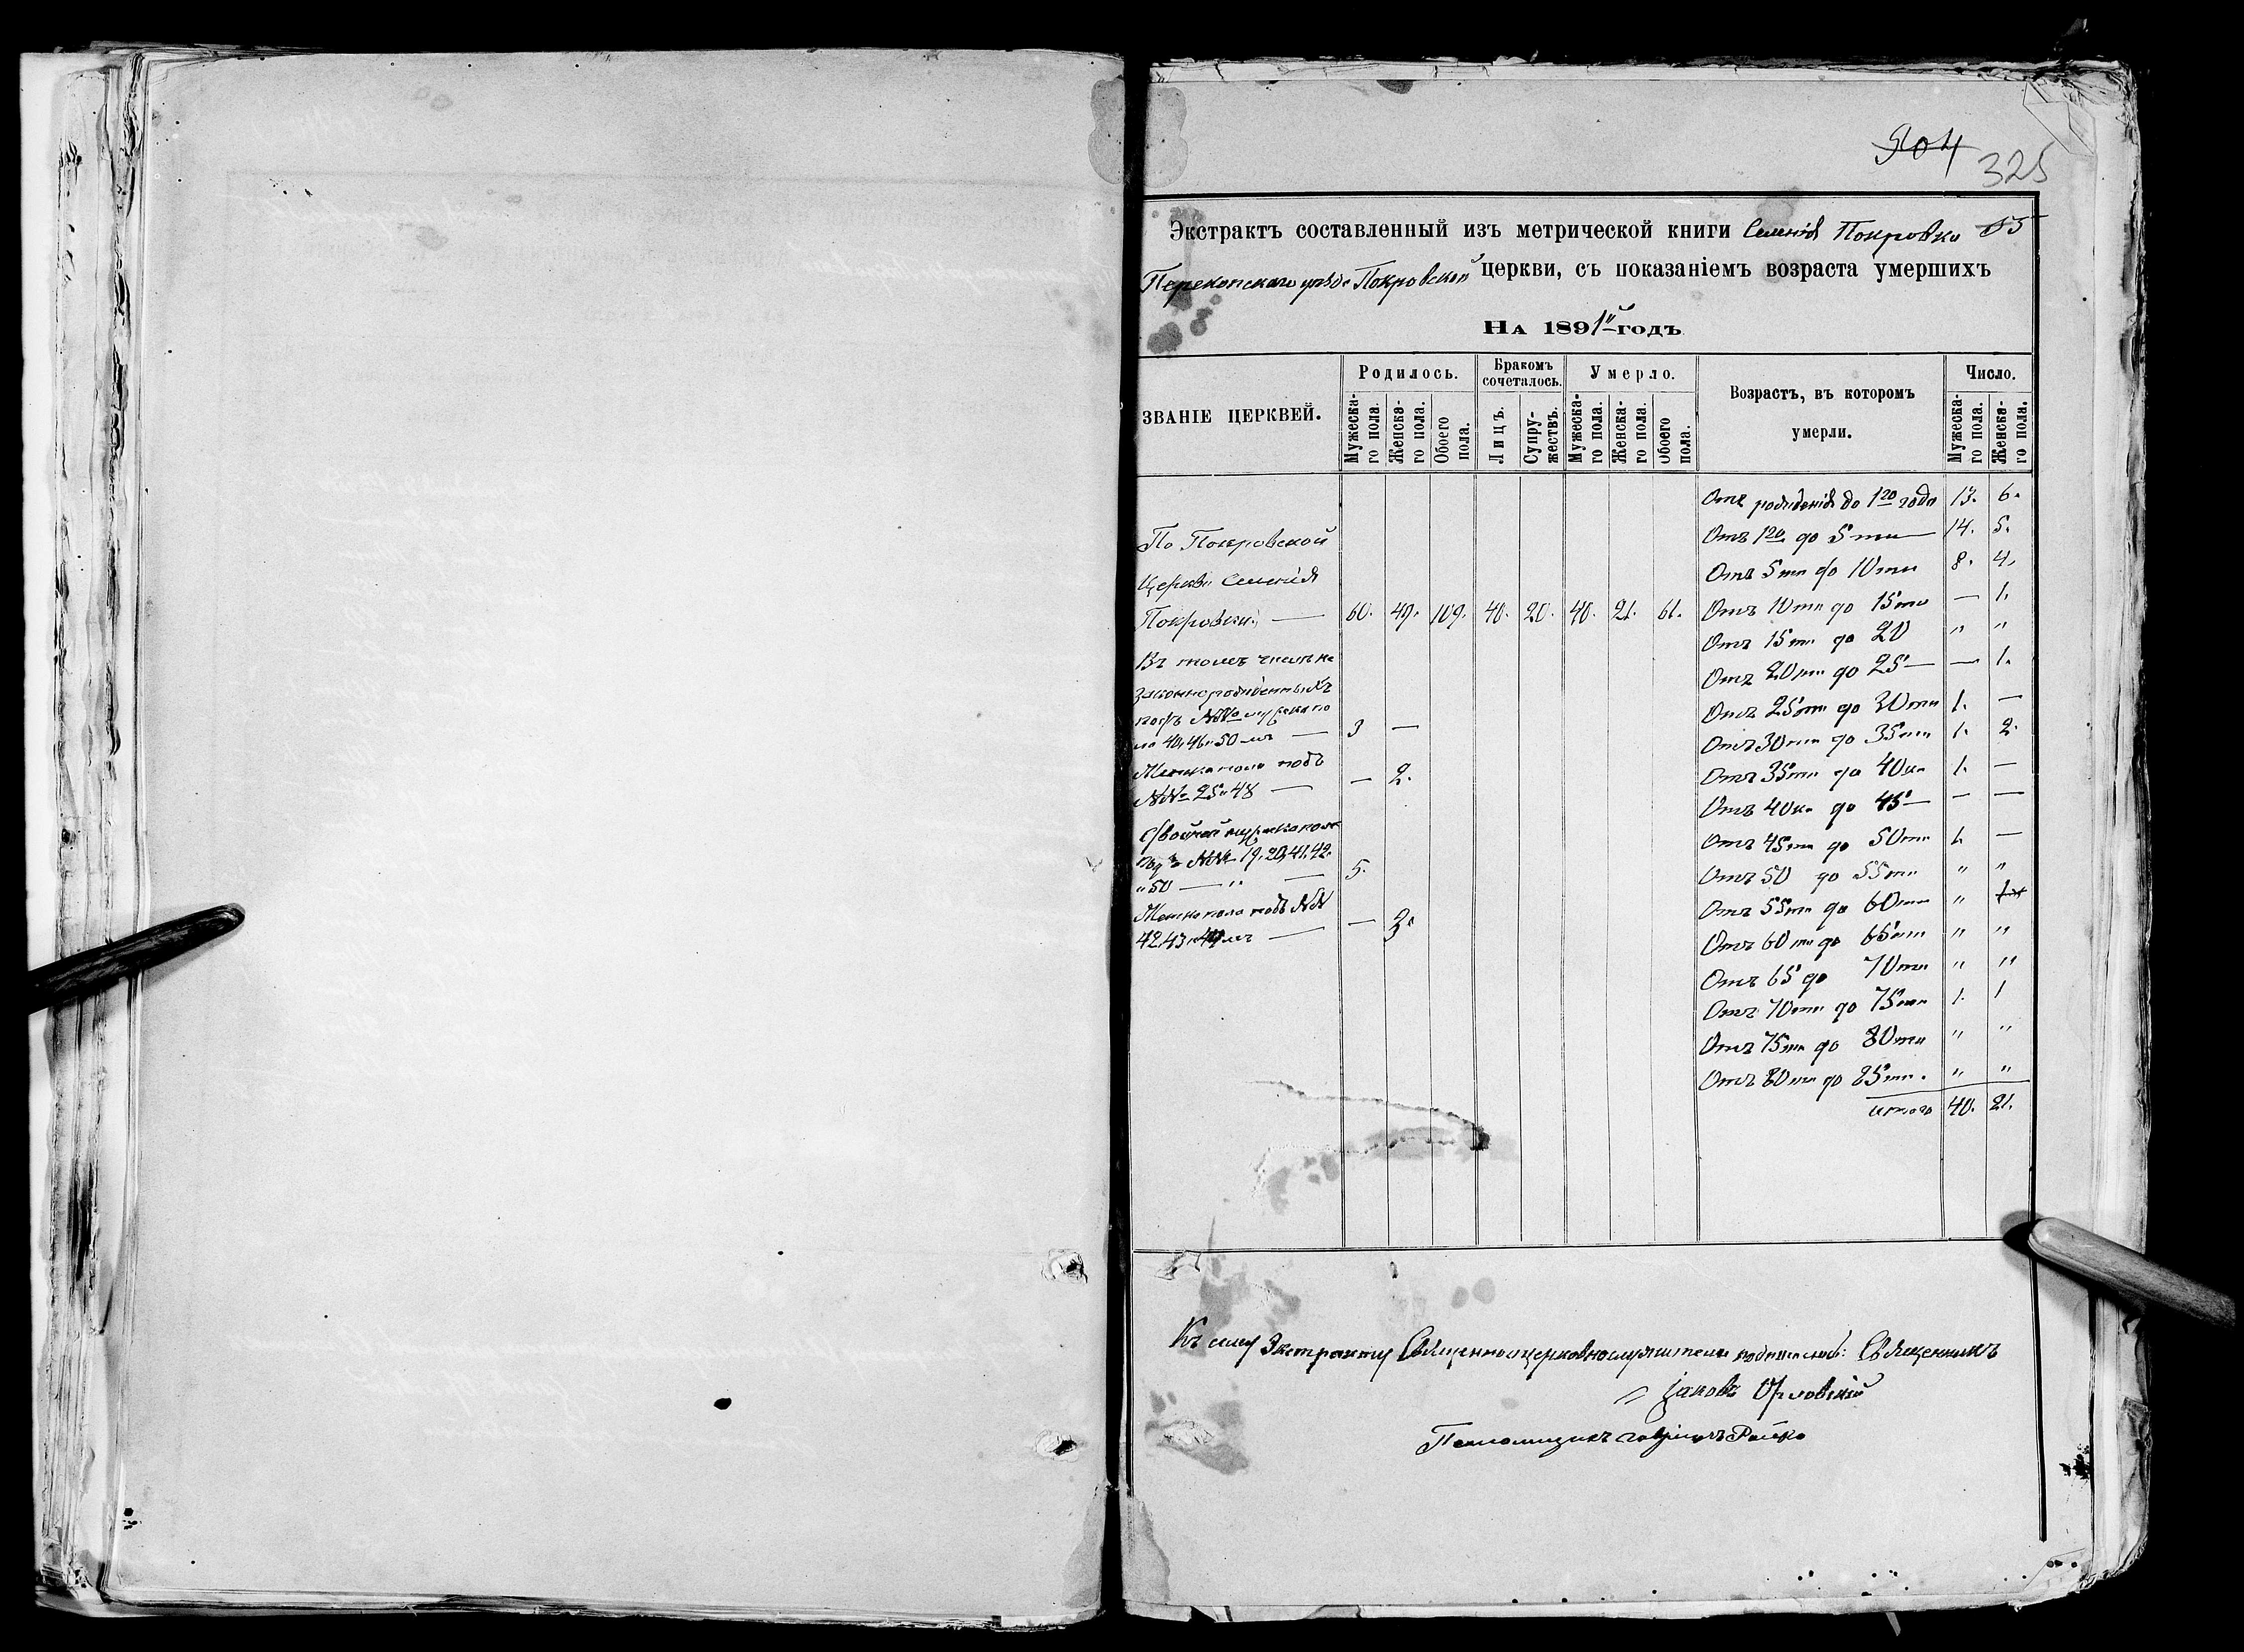 904
325
Экстрактъ составленный изъ метрической книги Селенія Покровки 85
Перекопскаго уѣзда Покровской церкви, съ показаніемъ возраста умершихъ
На 1891й годъ
ЗВАНІЕ ЦЕРКВЕЙ.
Родилось.
Бракомъ сочеталось.
Умерло.
Возрастъ, въ которомъ умерли.
Число.
Мужеска-го пола.
Женска-го пола.
Обоего пола.
Лицъ.
Супру-жествъ.
Мужеска-го пола.
Женска-го пола.
Обоего пола.
Мужеска-го пола.
Женска-го пола.
По Покровской
Церкви Селенія
Покровки — 60. 49. 109. 40. 20. 40. 21. 61.
Въ томъ числѣ не
законнорожденныхъ
подъ №№ мужска по
ла 40, 46 и 50 мъ — 3 —
Женска пола подъ
№№ 25 и 48 — — 2.
двойней мужска пола
подъ №№ 19. 20, 41. 42.
и 50 — " — 5.
Женска пола подъ №№
42. 43 и 49 мъ — — 3.
Отъ рожденія до 1го года 13. 6.
Отъ 1го до 5ти — 14. 5.
Отъ 5ти до 10ти 8. 4.
Отъ 10ти до 15ти — 1.
Отъ 15ти до 20 " "
Отъ 20ти до 25 — — 1.
Отъ 25ти до 30ти 1. —
Отъ 30ти до 35ти 1. 2.
Отъ 35ти до 40ка 1. —
Отъ 40ка до 45 — — —
Отъ 45ти до 50ти 1. —
Отъ 50 до 55ти " "
Отъ 55ти до 60ти " 1
Отъ 60ти до 65ти " "
Отъ 65 до 70ти " "
Отъ 70ти до 75ти 1. 1
Отъ 75ти до 80ти " "
Отъ 80ти до 85ти. " "
итого 40. 21.
Къ сему Экстракту Священноцерковнослужители подписались: Священникъ
Іаковъ Орловскій
Псаломщикъ Гавріилъ Райко